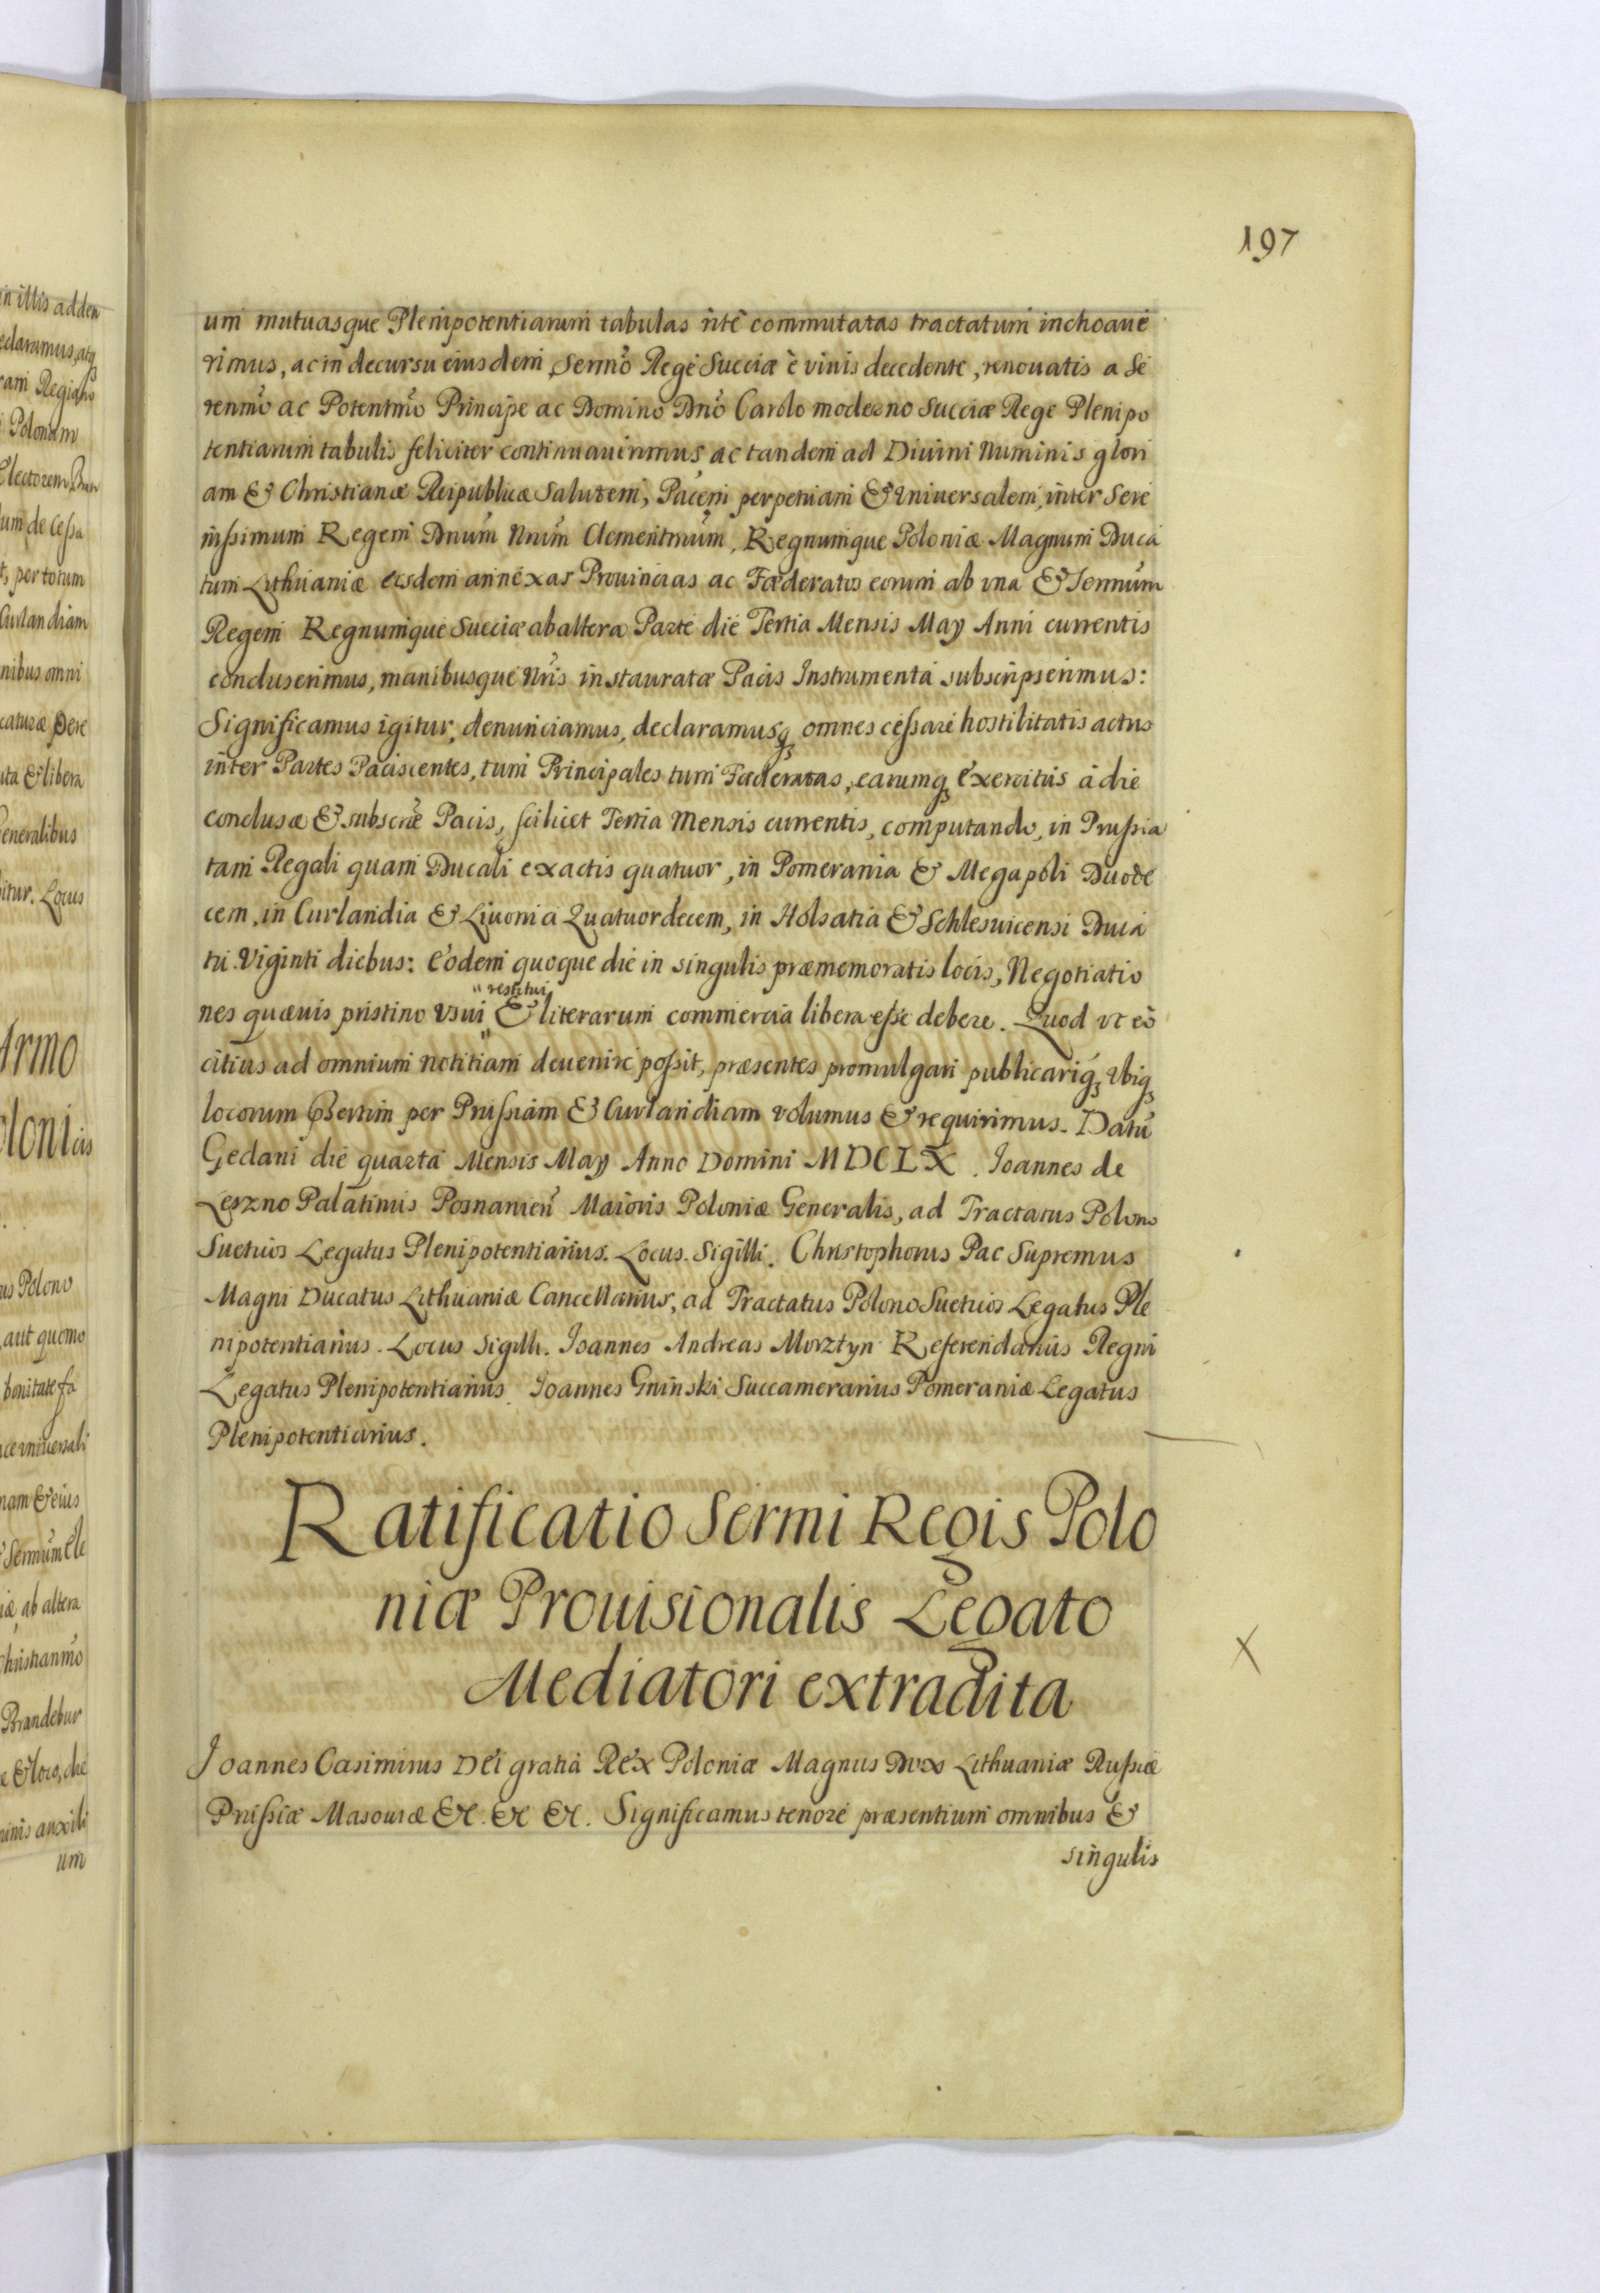 197
um mutuasque Plenipotentiarum tabulas rité commutatas tractatum inchoaue
rimus, ac in decursu eiusdem, Sermo Rege Sueciæ è viuis decedente, renouatis a Se
renmo ac Potentmo Principe ac Domino Dno Carolo moderno Sueciæ Rege Plenipo
tentiarum tabulis feliciter continuauerimus ac tandem ad Diuini Numinis glori
am & Christianæ Reipublicæ Salutem, Pacem perpetuam & Vniuersalem, inter Sere
nissimum Regem Dnum Nrum Clementmum, Regnumque Poloniæ Magnum Duca
tum Lithuaniæ eisdem annexas Prouincias ac Fœderatos eorum ab vna & Sermum
Regem Regnumque Sueciæ ab altera Parte die Tertia Mensis May Anni currentis
concluserimus, manibusque Nris instauratæ Pacis Instrumenta subscripserimus:
Significamus igitur, denunciamus, declaramusq omnes cessare hostilitatis actus
inter Partes Paciscentes, tum Principales tum Fœderatas, earumq exercitus á die
conclusæ & subscræ Pacis, scilicet Tertia Mensis currentis, computando, in Prussia
tam Regali quam Ducali exactis quatuor, in Pomerania & Megapoli Duode
cem, in Curlandia & Liuonia Quatuordecem, in Holsatia & Schlesuicensi Duca
tu Viginti diebus: eodem quoque die in singulis præmemoratis locis, Negotiatio
restitui
nes quæuis pristino vsui & literarum commercia libera esse debere. Quod vt eò
citius ad omnium notitiam deuenire possit, præsentes promulgari publicariq, vbiq
locorum psertim per Prussiam & Curlandiam volumus & requirimus. Datu
Gedani die quarta Mensis May Anno Domini MDCLX. Joannes de
Leszno Palatinus Posnanien Maioris Poloniæ Generalis, ad Tractatus Polono
Suetuos Legatus Plenipotentiarius. Locus. Sigilli. Christophorus Pac Supremus
Magni Ducatus Lithuaniæ Cancellarius, ad Tractatus Polono Suetuos Legatus Ple
nipotentiarius. Locus Sigilli. Joannes Andreas Morztyn Referendarius Regni
Legatus Plenipotentiarius. Joannes Gninski Succamerarius Pomeraniæ Legatus
Plenipotentiarius.
Ratificatio Sermi Regis Polo
niæ Prouisionalis Legato
Mediatori extradita
Joannes Casimirus Dei gratia Rex Poloniæ Magnus Dux Lithuaniæ Russiæ
Prussiæ Masouiæ &c. &c &c. Significamus tenore præsentium omnibus &
singulis